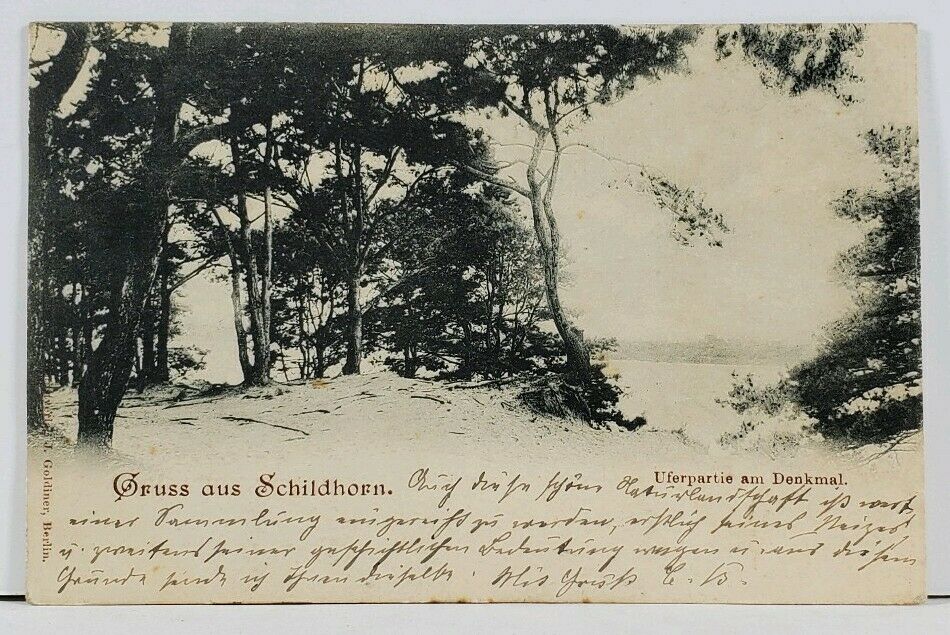 Gruss aus Schildhorn.
Uferpartie am Denkmal.
Auch diese schöne Naturlandschaft ist wert
einer Sammlung eingereiht zu werden, erstlich seines Reizes
u. zweitens seiner geschichtlichen Bedeutung wegen u. aus diesem
Grunde sende ich Ihnen dieselbe. Mit Gruß E. B.
J. Goldiner, Berlin.